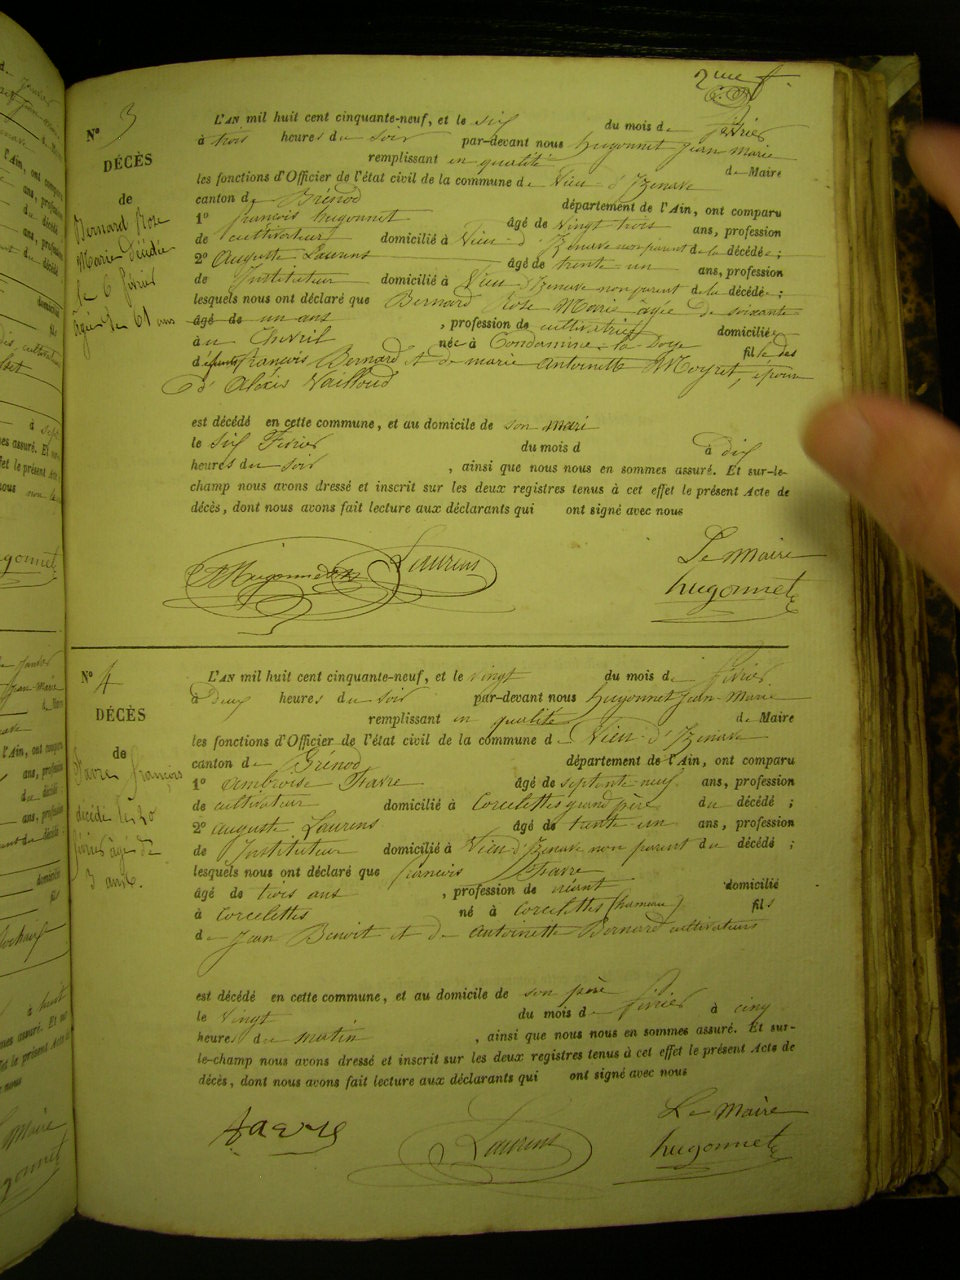 2me f.
N° 3
DÉCÈS
de
Bernard Rose
Marie décédée
le 6 février
âgée de 61 ans
L'AN mil huit cent cinquante-neuf, et le six du mois de février
à trois heures du soir par-devant nous hugonnet jean marie
remplissant en qualité de Maire
les fonctions d'Officier de l'état civil de la commune de Vieu d'Izenave
canton de Brénod département de l'Ain, ont comparu
1° françois hugonnet âgé de vingt trois ans, profession
de cultivateur domicilié à Vieu d'Izenave non parent de la décédée;
2° Auguste Laurens âgé de trente un ans, profession
de Instituteur domicilié à Vieu d'Izenave non parent de la décédée;
lesquels nous ont déclaré que Bernard Rose Marie âgée de soixante
âgé de un ans, profession de cultivatrice domiciliée
à au Chevril née à Condamine la Doye fille des
défunts françois Bernard et de marie Antoinette Moyret, épouse
d'Alexis Vailloud
est décédé en cette commune, et au domicile de son mari
le six Février du mois d à dix
heures du soir, ainsi que nous nous en sommes assuré. Et sur-le-
champ nous avons dressé et inscrit sur les deux registres tenus à cet effet le présent Acte de
décès, dont nous avons fait lecture aux déclarants qui ont signé avec nous
Hugonnet Laurens Le Maire
hugonnet
N° 4
DÉCÈS
de
Favre françois
décédé le 20
février âgé de
3 ans
L'AN mil huit cent cinquante-neuf, et le vingt du mois de février
à Deux heures du soir par-devant nous hugonnet jean marie
remplissant en qualité de Maire
les fonctions d'Officier de l'état civil de la commune de Vieu d'Izenave
canton de Brénod département de l'Ain, ont comparu
1° Ambroise Favre âgé de septente neuf ans, profession
de cultivateur domicilié à Corcelettes grand père du décédé;
2° Auguste Laurens âgé de trente un ans, profession
de Instituteur domicilié à Vieu d'Izenave non parent du décédé;
lesquels nous ont déclaré que françois Favre
âgé de trois ans, profession de néant domicilié
à Corcelettes né à Corcelettes (hameau) fils
de Jean Benoit et de Antoinette Bernard cultivateurs
est décédé en cette commune, et au domicile de son père
le vingt du mois de février à cinq
heures du matin, ainsi que nous nous en sommes assuré. Et sur-
le-champ nous avons dressé et inscrit sur les deux registres tenus à cet effet le présent Acte de
décès, dont nous avons fait lecture aux déclarants qui ont signé avec nous
favre Laurens Le Maire
hugonnet